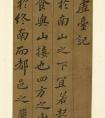 虛臺記
於南山之下宜若起
食與山接也四方之
於終南而都邑之麗